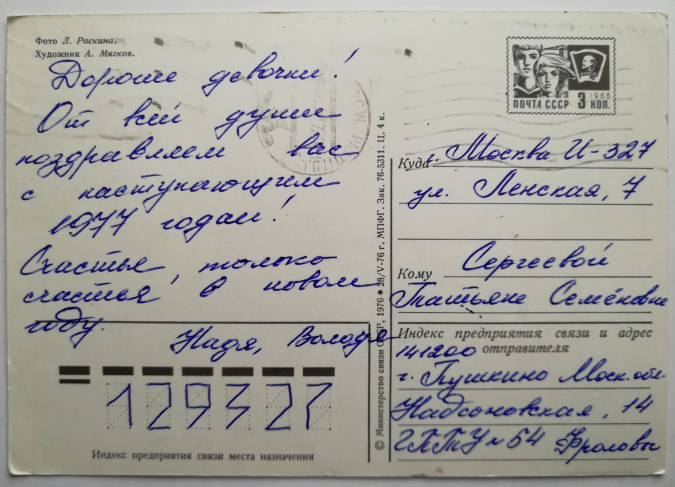 Фото Л. Раскина.
Художник А. Мягков.
Дорогие девочки!
От всей души
поздравляем вас
с наступающим
1977 годом!
Счастья, только
счастья в новом
году.
Надя, Володя
129327
Индекс предприятия связи места назначения
© Министерство связи СССР, 1976 • 28/V-76 г. МПФГ. Зак. 76-5311. Ц. 4 к.
1966
ПОЧТА СССР 3 КОП.
Куда г. Москва И-327
ул. Ленская, 7
Кому Сергеевой
Татьяне Семёновне
Индекс предприятия связи и адрес
141200 отправителя
г. Пушкино Моск. обл.
Надсоновская, 14
ГПТУ № 54 Фроловы